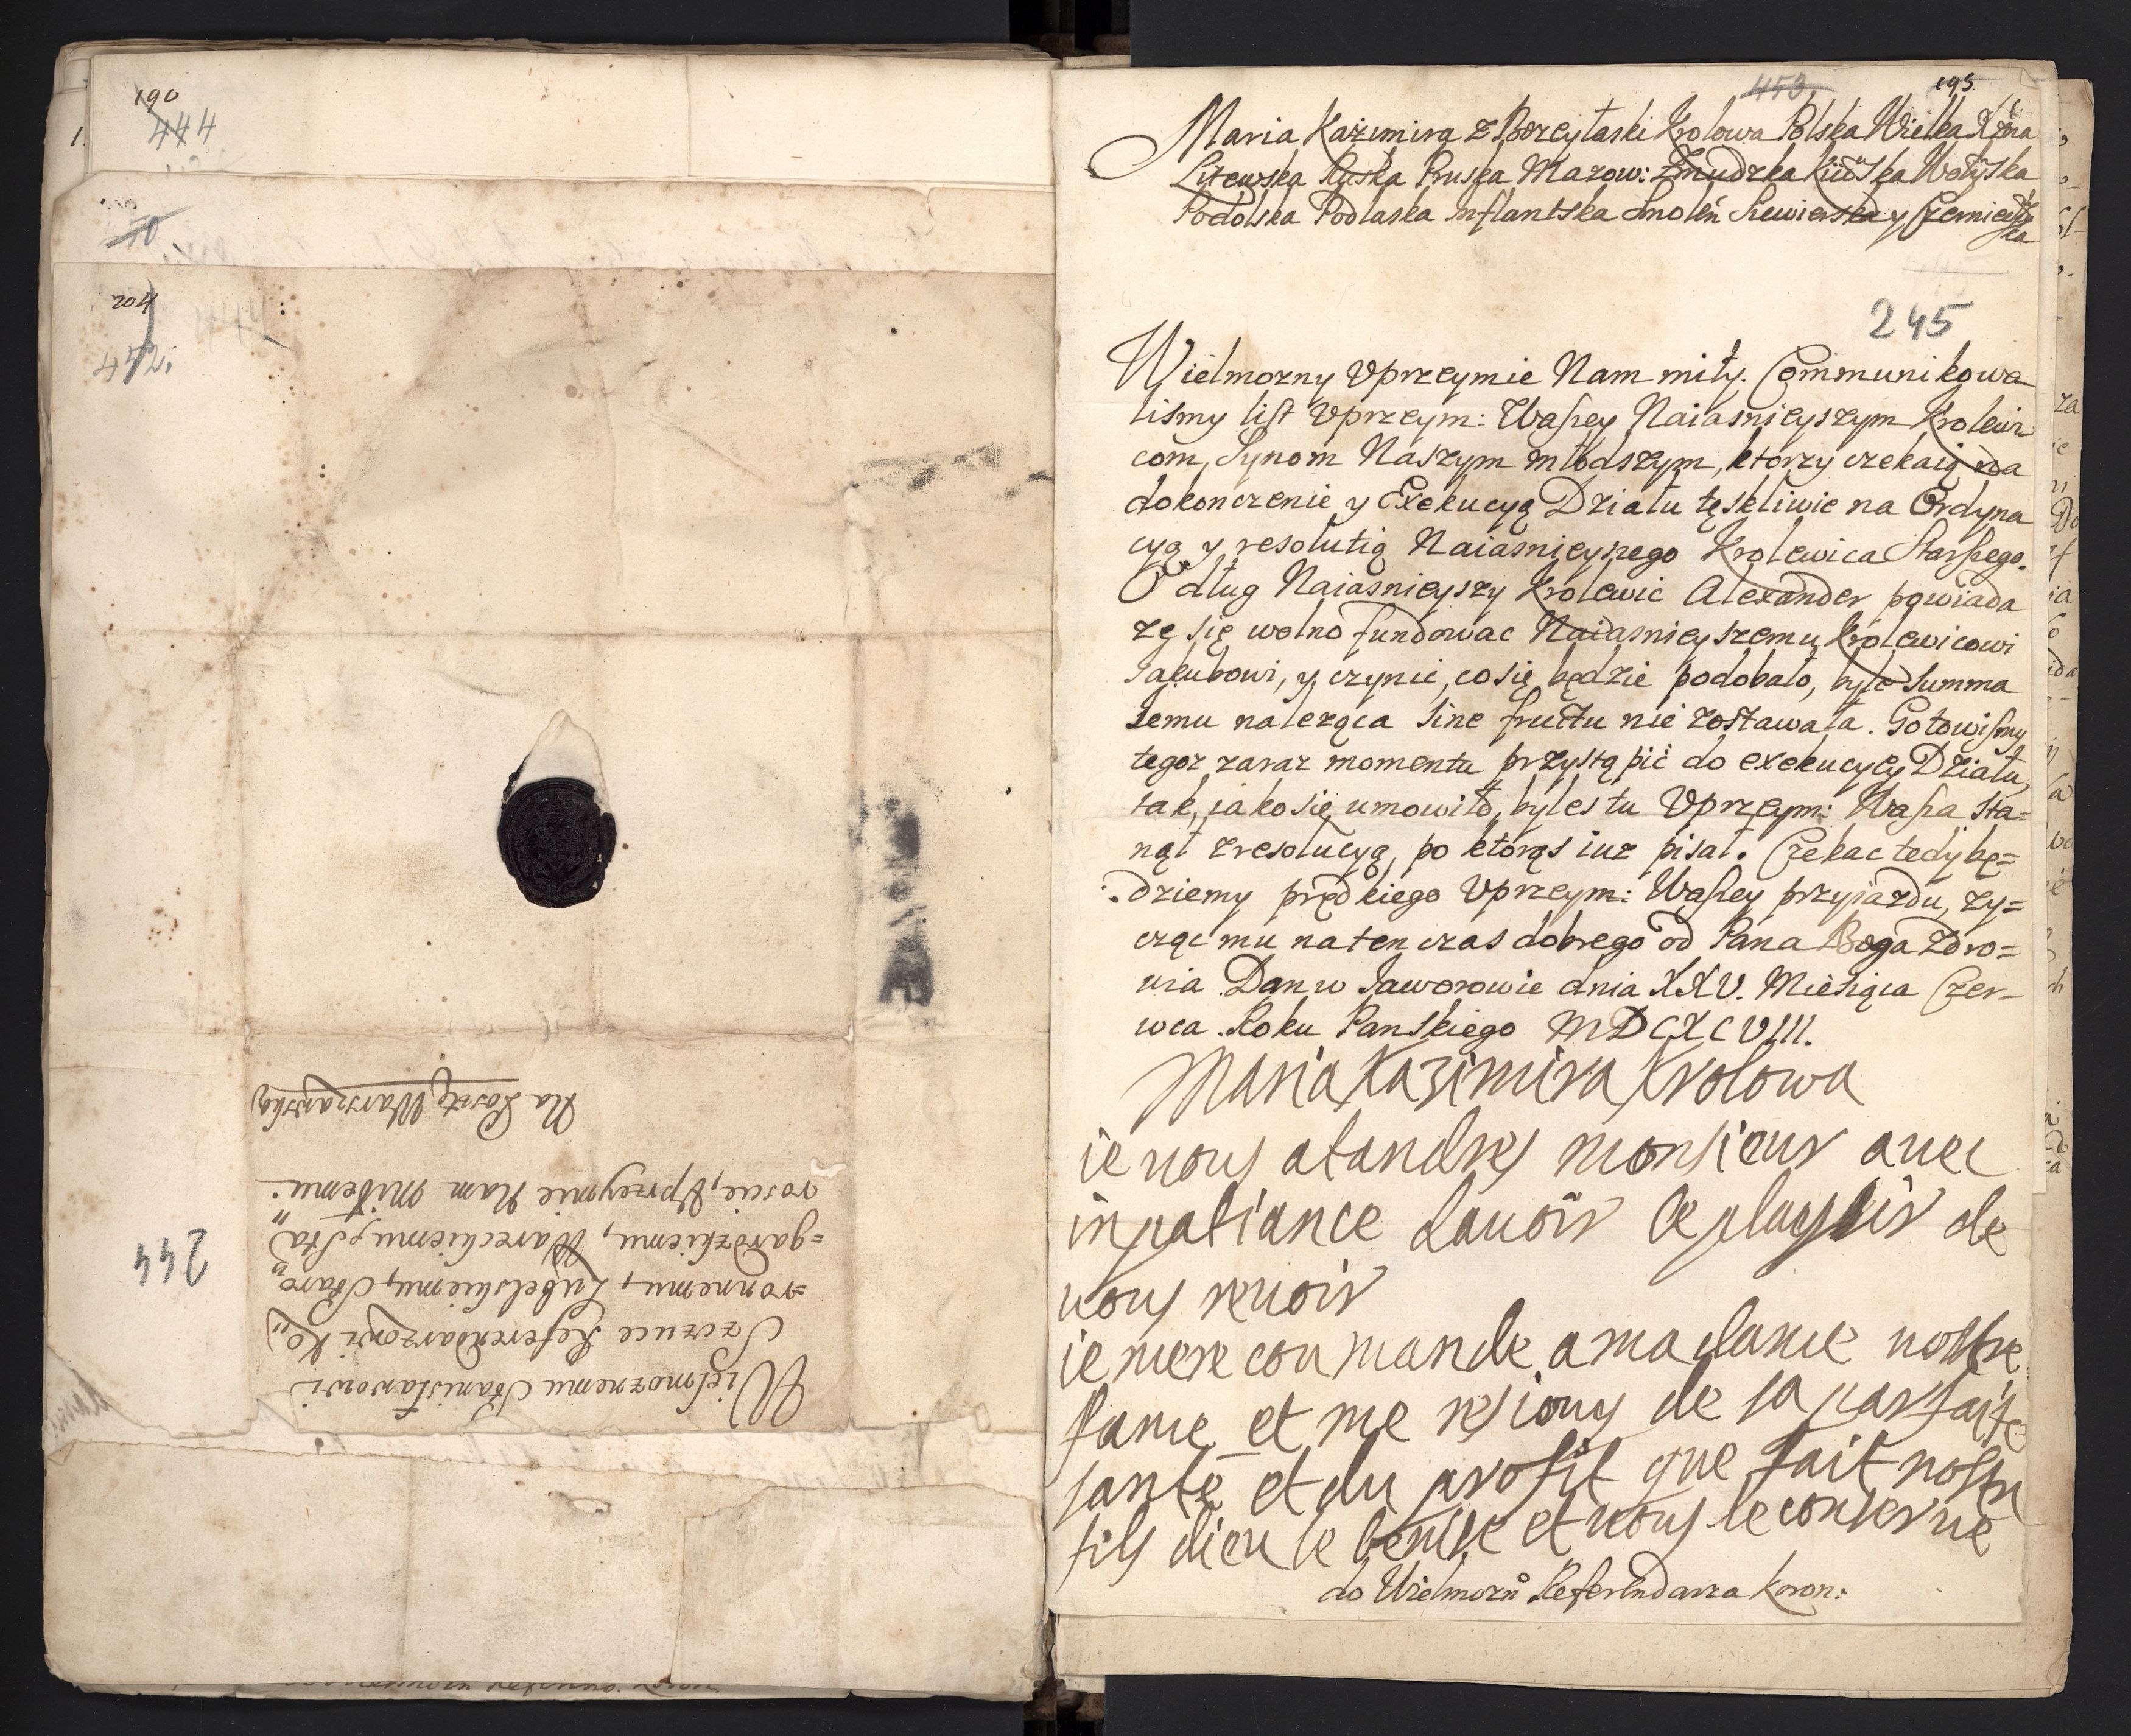 190
444
70
204
452.
Na Posztę Warszawską
Wielmoznemu Stanisławowi
Szczuce Referendarzowi Ko„
=ronnemu, Lubelskiemu, Staro„
=gardzkiemu, Wareckiemu, Sta„
roscie, Vprzeymie Nam Miłemu.
244
453.
195
Maria Kazimira z Bożey łaski Krolowa Polska Wielka Xżna
Litewska Ruska Pruska Mazow: Zmudzka Kiiowska Wołyńska
Podolska Podlaska Inflantska Smoleń Siewierska y Czerniechow
ska
245
Wielmozny Vprzeymie Nam miły. Communikowa
lismy list Vprzeym: Waszey Naiasnieyszym Krolewi
com, Synom Naszym młodszym, ktorzy czekaią na
dokonczenie y Exekucyą Działu tęskliwie na Ordyna
cyą y resolutią Naiasnieyszego Krolewica Starszego.
O dług Naiasnieyszy Krolewic Alexander powiada
zę się wolno fundowac Naiasnieyszemu Krolewicowi
Jakubowi, y czynic, co się będzie podobało, byle Summa
Jemu naleząca sine fructu nie zostawała. Gotowismy
tegoz zaraz momentu przystąpić do exekucyey Działu,
tak, jako się umowiło, byles tu Vprzeym: Wasza sta=
nął z resolucyą, po ktorąs iuz pisał. Czekac tedy bę=
dziemy prędkiego Vprzeym: Waszey przyiazdu, zy=
cząc mu na ten czas dobrego od Pana Boga zdro=
wia. Dan w Jaworowie dnia XXV. Miesiąca Czer-
wca. Roku Panskiego MDCXCVIII.
Maria Kazimira Krolowa
ie vous atandres monsieur avec
inpatiance davoir le playsir de
vous revoir
ie me recoumande a madame vostre
fame et me resiouy de sa parfaite
santé et du profit que fait vostre
fils dieu le benisse et vous le conserve
do Wielmozn Referendarza Koron: